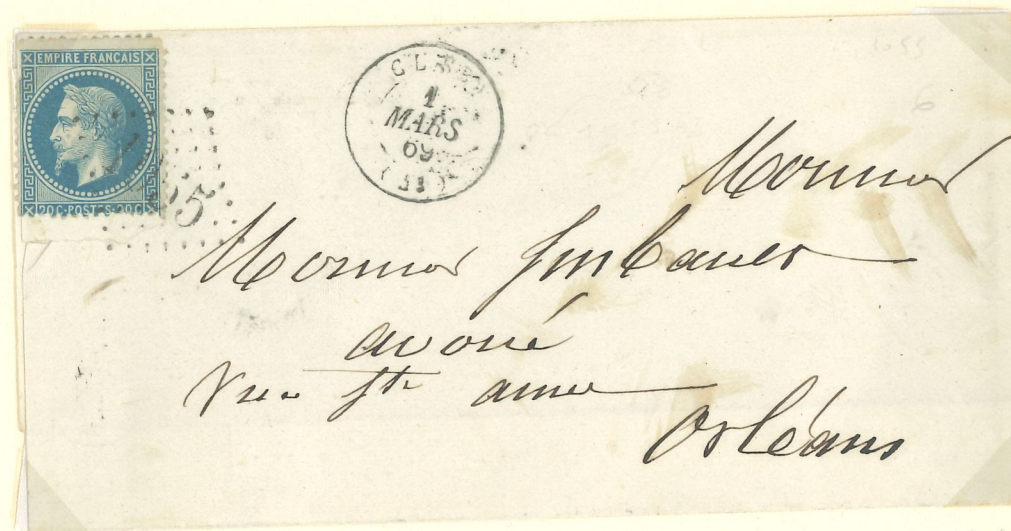 EMPIRE FRANÇAIS
20 C. POSTES 20 C.
1
MARS
69
Monsieur
Monsieur
avoué
rue Ste anne
Orléans